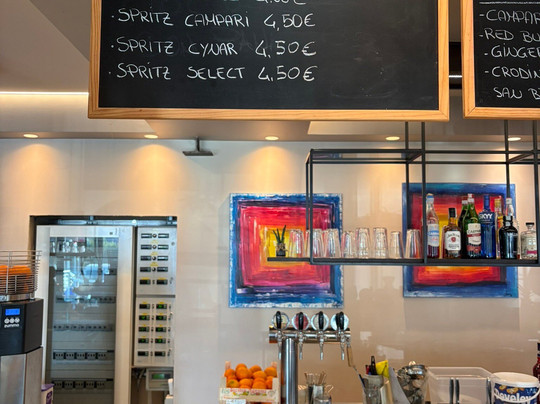 · SPRITZ CAMPARI 4,50€
· SPRITZ CYNAR 4,50€
· SPRITZ SELECT 4,50€
- CAMPAR
- RED BU
- GINGER
- CRODIN
SAN B
SKYY